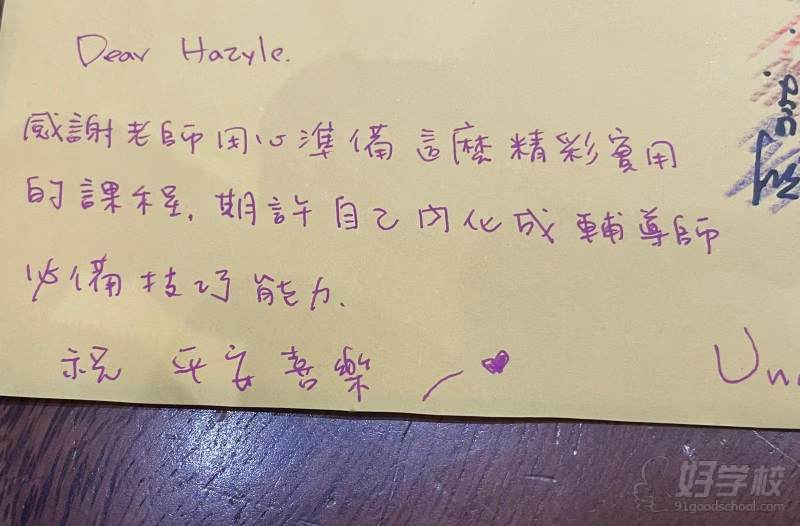 Dear Hazyle.
感謝老師用心準備這麼精彩實用
的課程,期許自己內化成輔導師
必備技巧能力.
祝 平安喜樂
好学校
91goodschool.com